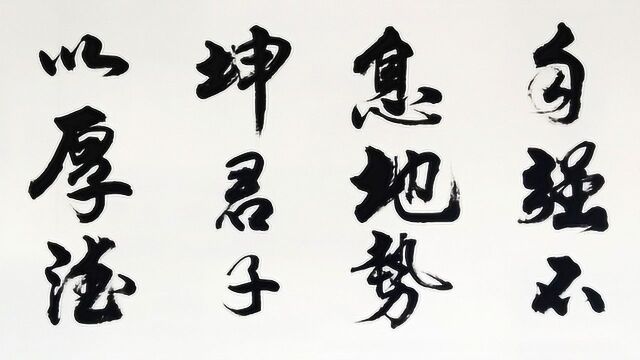 自强不
息地势
坤君子
以厚德